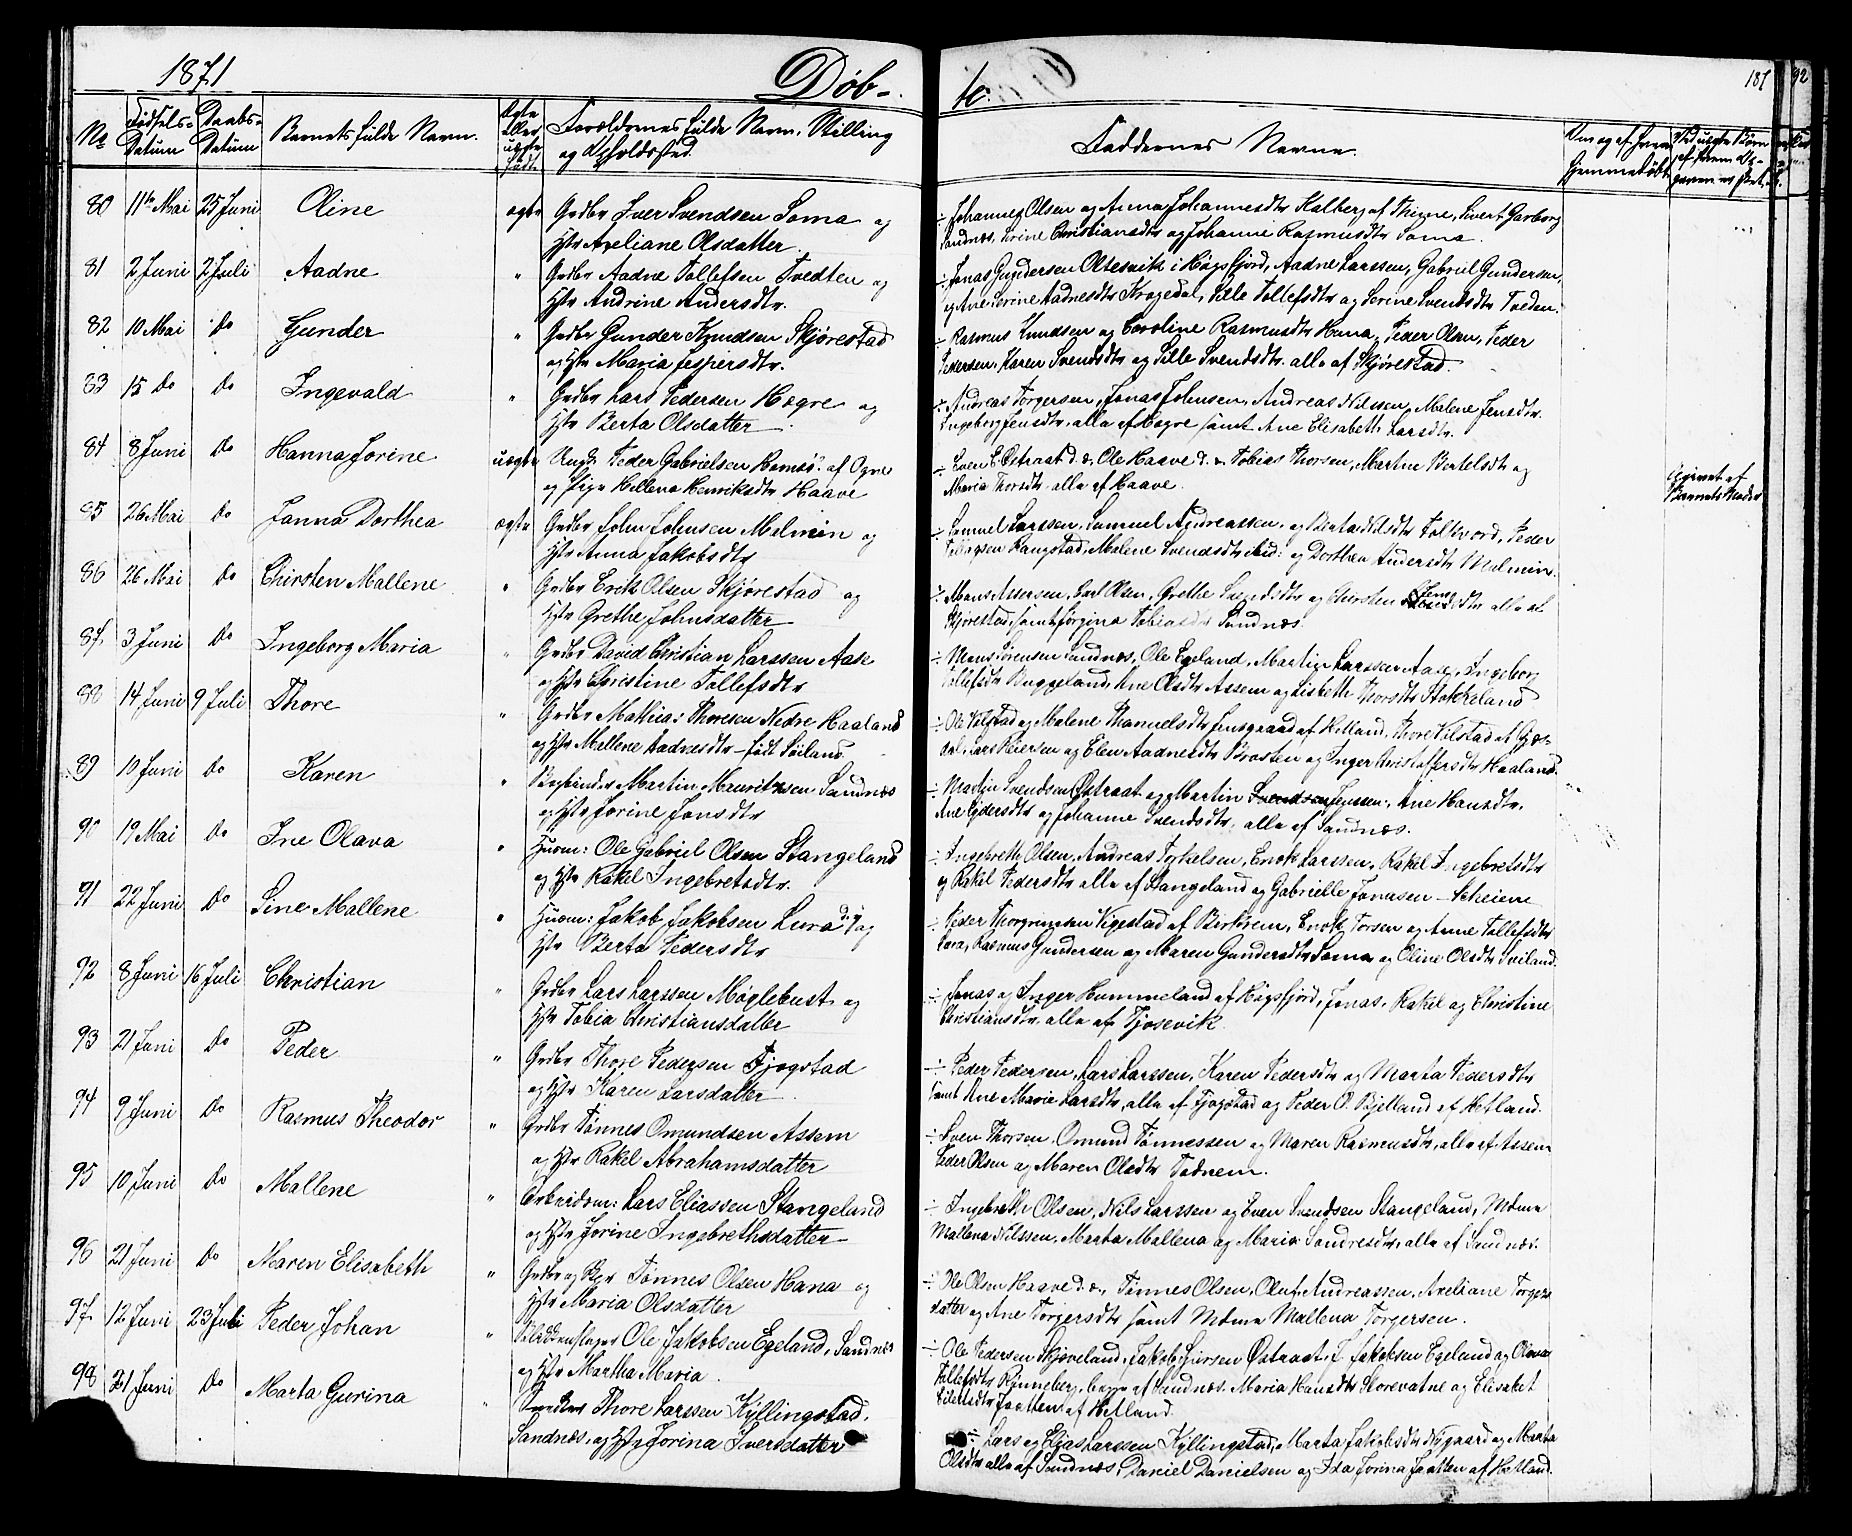 1871
Døb-
te.
187
92
No
Fødsels-
Datum
Daabs-
Datum
Barnets fulde Navn.
Ægte
eller
uægte
født
Forældrenes fulde Navn, Stilling
og Opholdssted.
Faddernes Navne.
80 11te Mai 25 Juni Oline ægte Grdbr Iver Svendsen Soma og
Hstr Aveliane Olsdatter.
÷ Johannes Olsen og Anna Johannesdtr Kalberg af Thime, Sivert Garborg
Sandnæs, Serine Christiansdtr og Johanne Rasmusdtr Soma.
81 2 Juni 2 Juli Aadne " Grdbr Aadne Tollefsen Tvedten og
Hstr Andrine Andersdtr.
÷ Jonas Gundersen Oltesvik i Høgsfjord, Aadne Larssen, Gabriel Gundersen,
og Ane Serine Aadnesdtr Kragedal, Sille Tollefsdtr og Serine Svendsdtr Tveden.
82 10 Mai Do Gunder " Grdbr Gunder Knudsen Skjørestad
og Hstr Maria Jespersdtr.
÷ Rasmus Knudsen og Caroline Rasmusdtr Hana, Peder Olsen, Peder
Pedersen, Karen Svendsdtr og Sille Svendsdtr. alle af Skjørestad.
83 15 Do Do Ingevald " Grdbr Lars Pedersen Hogre og
Hstr Berta Olsdatter.
÷ Andreas Torgersen, Jonas Johnsen, Andreas Nilssen, Malene Jensdtr.
Ingeborg Jensdtr. alle af Hogre samt Ane Elisabeth Larsdtr.
84 8 Juni Do Hanna Jorine uægte Ungk. Peder Gabrielsen Ramsø. af Ogne
og Pige Hellena Henriksdtr Haave
÷ Sven E. Østraat d.æ. Ole Haave d. æ Tobias Thorsen, Martne Bertelsdtr og
Maria Thorsdtr. alle af Haave.
Opgivet af
Barnets Moder
85 26 Mai Do Janna Dorthea ægte Grdbr John Johnsen Malmin og
Hstr Anna Jakobsdtr
÷ Samuel Larssen, Samuel Andreassen, og Berta Nilsdtr Folkvord, Peder
Rangstad, Malene Svendsdtr ibid: og Dorthea Andersdtr Malmin.
86 26 Mai Do Chirsten Mallene " Grdbr Erik Olsen Skjørestad og
Hstr Grethe Johnsdatter
÷ Mans Assersen, Carl Olsen, Grethe Svendsdtr og Chirsten dtr alle af
Skjørestad, samt Jørgina Tobiasdtr Sandnæs.
87 3 Juni Do Ingeborg Maria " Grdbr David Christian Larssen Aase
og Hstr Christine Tollefsdtr
÷ Mons Sørensen Sandnæs, Ole Egeland, Martin Larssen Aase, Ingeborg
Tollefsdtr Buggeland, Ane Olsdtr Assem og Lisbeth Thorsdtr Stokkeland
88 14 Juni 9 Juli Thore " Grdbr Mathias Thoresen Nedre Haaland
og Hstr Mallene Aadnesdtr - født Søiland
÷ Ole Vølstad og Malene Thamuelsdtr Jensgaard af Hetland, Thore Vølstad af Gjes-
dal, Lars Peersen og Elen Aadnesdtr Braasten og Inger Christoffersdtr Haaland.
89 10 Juni Do Karen " Bogbinder Martin Mauritzsen Sandnæs
og Hstr Jorine Jonsdtr
÷ Martin Svendsen Østraat og Martin Svendsen Jenssen, Ane Hansdtr,
Ane Ejdersdtr og Johanne Svendsdtr, alle af Sandnæs.
90 19 Mai Do Ine Olava " Husm: Ole Gabriel Olsen Stangeland
og Hstr Rakel Ingebretsdtr.
÷ Ingebreth Olsen, Andreas Torkelsen, Enok Larssen, Rakel Ingebretsdtr
og Rakel Pedersdtr alle af Stangeland og Gabrielle Jonasen Scheiene
91 22 Juni Do Sine Mallene " Husm: Jakob Jakobsen Lura d.y. og
Hstr Berta Pedersdtr
÷ Peder Thorgrimsen Vigestad af Birkrem, Enok Torsen og Anne Tollefsdtr
Lura, Rasmus Gundersen og Maren Gundersdtr Soma og Oline Olsdtr Sviland.
92 8 Juni 16 Juli Christian " Grdbr Lars Larssen Møglebust og
Hstr Tobia Christiansdatter
÷ Jonas og Inger Hammeland af Høgsfjord, Jonas, Rakel og Christine
Christiansdtr, alle af Tjosevik.
93 21 Juni Do Peder " Grdbr Thore Pedersen Fjogstad
og Hstr Karen Larsdatter.
÷ Peder Pedersen, Lars Larssen, Karen Pedersdtr og Marta Pedersdtr
samt Ane Marie Larsdtr, alle af Fjogstad og Peder O. Bjelland af Hetland.
94 9 Juni Do Rasmus Theodor " Grdbr Tønnes Omundsen Assem
og Hstr Rakel Abrahamsdatter
÷ Sven Thorsen, Omund Tønnessen og Maren Rasmusdtr, alle af Assem
Peder Olsen og Maren Olsdtr Tadnem.
95 10 Juni Do Mallene " Arbeidsm: Lars Eliassen Stangeland
og Hstr Jorine Ingebrethsdatter
÷ Ingebreth Olsen, Nils Larssen og Sven Svendsen Stangeland, Mdme
Mallena Nilssen, Marta Mallena og Maria Sandresdtr, alle af Sandnæs.
96 21 Juni Do Maren Elisabeth " Grdbr og Tønnes Olsen Hana og
Hstr Maria Olsdatter
÷ Ole Olsen Haave d.æ, Tønnes Olsen, Oluf Andreassen, Aveliane Torgers
datter og Ane Torgersdtr samt Mdme Mallena Torgersen.
97 12 Juni 23 Juli Peder Johan " Blikkenslager Ole Jakobsen Egeland, Sandnæs
og Hstr Martha Maria.
÷ Ole Pedersen Skjoveland, Jakob Iversen Østraat, J. Jakobsen Egeland og Olava
Tollefsdtr Rønneberg, begge af Sandnæs. Maria Hansdtr Storevatne og Elisabet
Eilertsdtr Jaatten af Hetland.
98 21 Juni Do Marta Gurina " Snedker Thore Larssen Kyllingstad,
Sandnæs, og Hstr Jorina Iversdatter
÷ Lars og Elias Larssen Kyllingstad, Marta Jakobsdtr Nygaard og Marta
Olsdtr alle af Sandnæs, Daniel Danielsen og Ida Jorina Jaatten af Hetland.